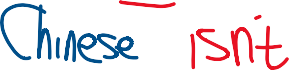 Chinese isn't